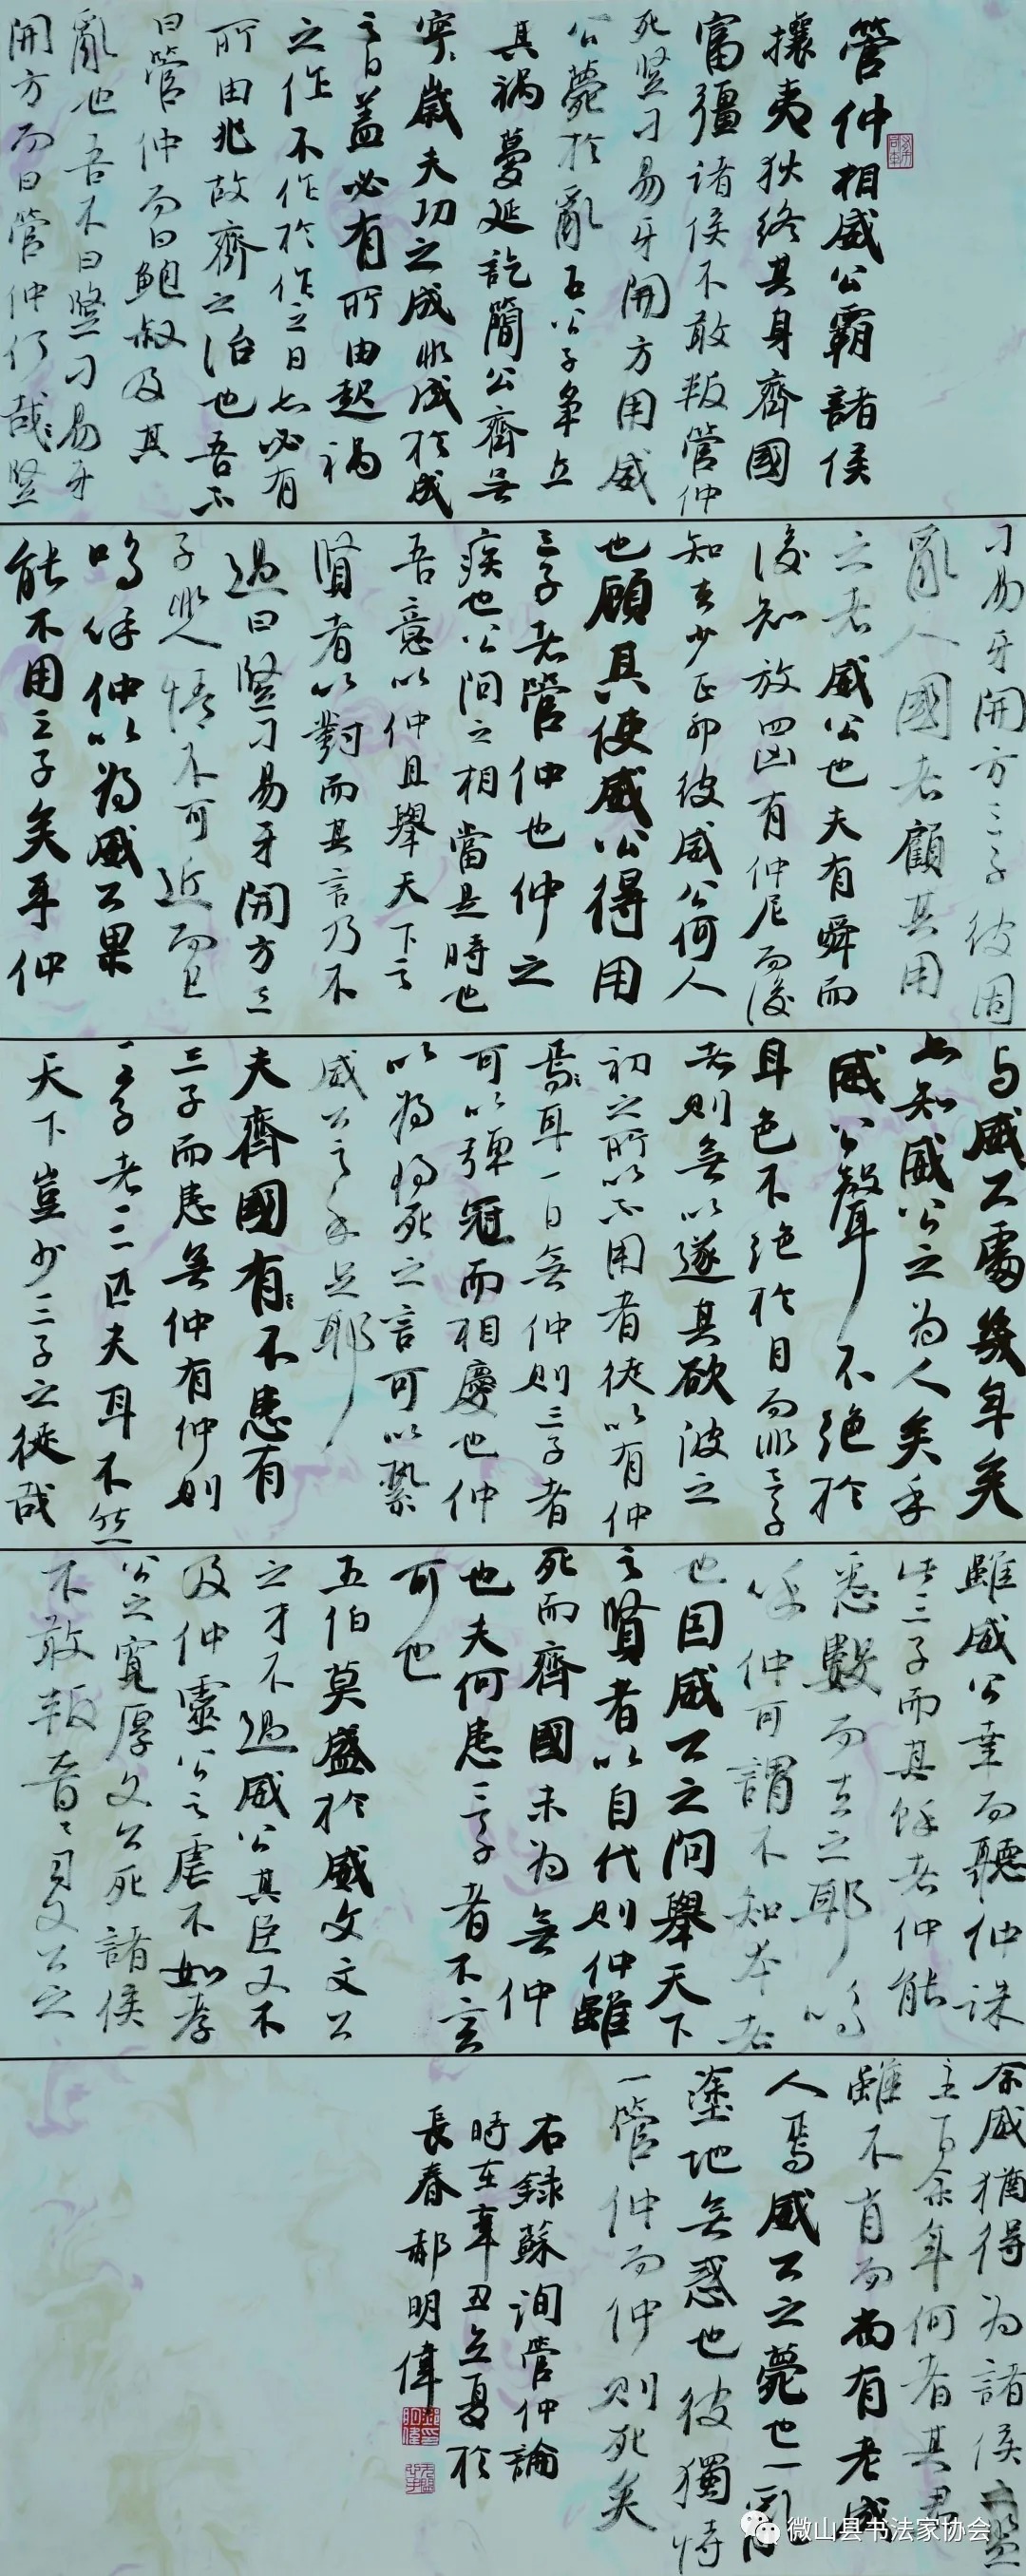 管仲相威公霸諸侯
攘夷狄終其身齊國
富彊诸侯不敢叛管仲
死竖刁易牙開方用威
公薨於亂五公子争立
其禍蔓延訖簡公齊無
寧歲夫功之成非成於成
之日蓋必有所由起禍
之作不作於作之日亦必有
所由兆故齊之治也吾不
曰管仲而曰鮑叔及其
亂也吾不曰竖刁易牙
開方而曰管仲何哉竖
刁易牙開方三子彼固
亂人國者顧其用
之者威公也夫有舜而
後知放四凶有仲尼而後
知去少正卯彼威公何人
也顧其使威公得用
三子者管仲也仲之
疾也公问之相當是時也
吾意以仲且舉天下之
賢者以對而其言乃不
過曰竖刁易牙開方三
子非人情不可近而已
嗚呼仲以為威公果
能不用三子矣乎仲
与威公處幾年矣
亦知威公之为人矣乎
威公聲不绝於
耳色不绝於目而非三子
者则無以遂其欲彼之
初之所以不用者徒以有仲
焉耳一日無仲则三子者
可以弹冠而相慶也仲
以為将死之言可以縶
威公之手足耶
夫齊國有不患有
三子而患無仲有仲则
三子者三匹夫耳不然
天下豈少三子之徒哉
雖威公幸而聽仲誅
此三子而其餘者仲能
悉數而去之耶嗚
呼仲可謂不知本者
也因威公之问舉天下
之賢者以自代则仲雖
死而齊國未为無仲
也夫何患三子者不言
可也
五伯莫盛於威文文公
之才不過威公其臣又不
及仲靈公之虐不如孝
公之寬厚文公死諸侯
不敢叛晋晋習文公之
余威猶得为諸侯盟
主百余年何者其君
雖不肖而尚有老成
人焉威公之薨也一亂
塗地無惑也彼獨恃
一管仲而仲则死矣
右録蘇洵管仲論
時在辛丑立夏於
長春郝明偉
微山县书法家协会